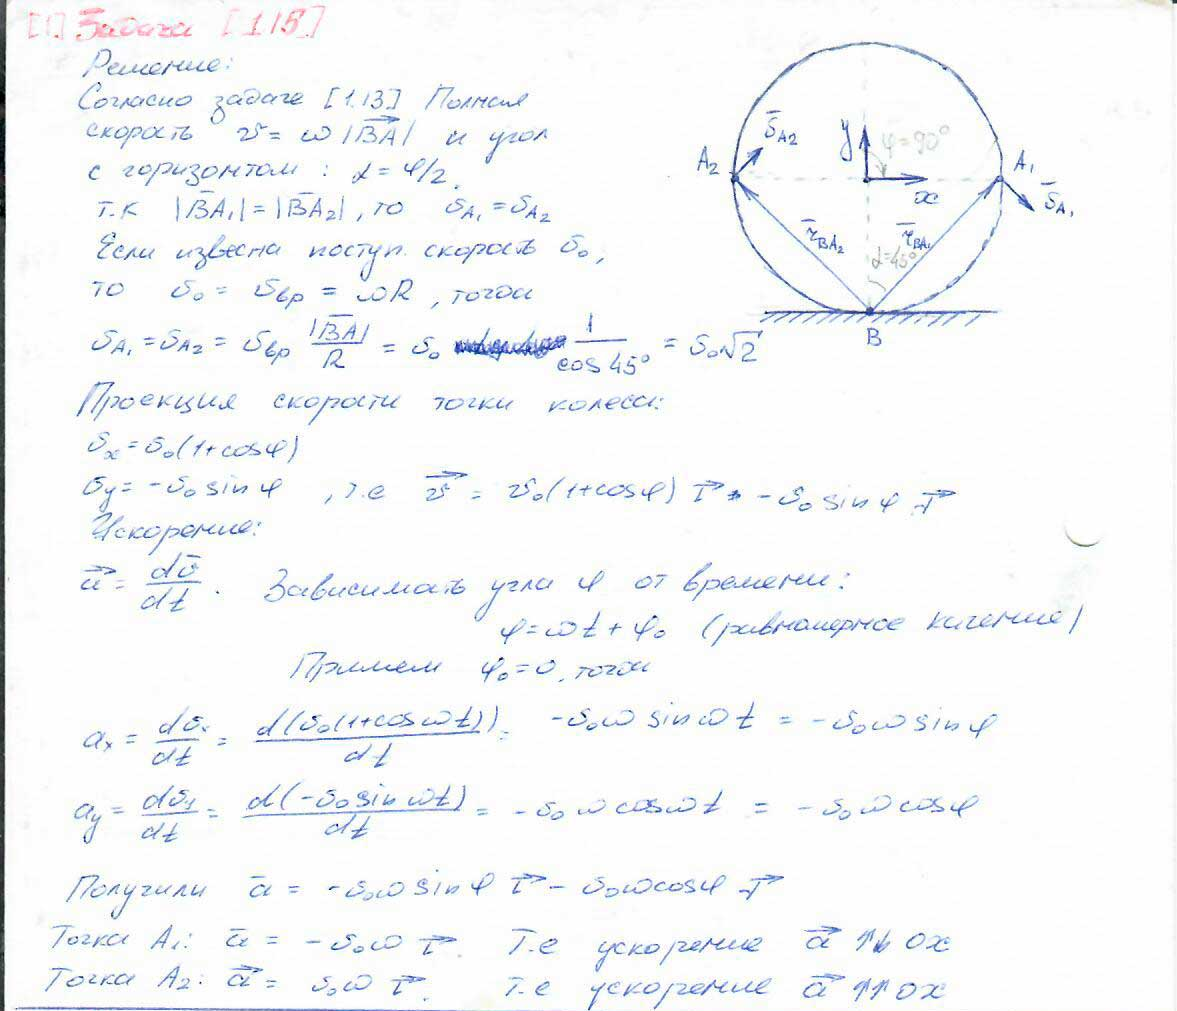 [1] Задача [1.15]
Решение:
Согласно задаче [1.13] Полная
скорость v = ω|BA| и угол
с горизонтом: α = φ/2.
т.к |BA₁| = |BA₂|, то υA₁ = υA₂
Если известна поступ. скорость υ₀,
то υ₀ = υвр = ωR, тогда
υA₁ = υA₂ = υвр |BA|/R = υ₀ 1/cos 45° = υ₀√2
Проекция скорости точки колеса:
υx = υ₀(1+cosφ)
υy = -υ₀ sin φ, т.е v = υ₀(1+cosφ) i - υ₀ sin φ j
Ускорение:
a = dυ/dt. Зависимать угла φ от времени:
φ = ωt + φ₀ (равномерное качение)
Примем φ₀ = 0, тогда
ax = dυx/dt = d(υ₀(1+cos ωt))/dt = -υ₀ω sin ωt = -υ₀ω sin φ
ay = dυy/dt = d(-υ₀ sin ωt)/dt = -υ₀ω cos ωt = -υ₀ω cos φ
Получили a = -υ₀ω sin φ i - υ₀ω cos φ j
Точка A₁: a = -υ₀ω i. Т.е ускорение a ↑↓ OX
Точка A₂: a = υ₀ω i. Т.е ускорение a ↑↑ OX
A₂
υA₂
y
φ=90°
x
A₁
υA₁
rBA₂
rBA₁
α=45°
B